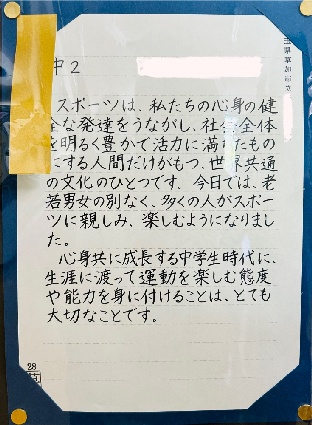 中2
スポーツは、私たちの心身の健
全な発達をうながし、社会全体
を明るく豊かで活力に満ちたもの
にする人間だけがもつ、世界共通
の文化のひとつです。今日では、老
若男女の別なく、多くの人がスポー
ツに親しみ、楽しむようになりまし
た。
心身共に成長する中学生時代に、
生涯に渡って運動を楽しむ態度
や能力を身に付けることは、とても
大切なことです。
28